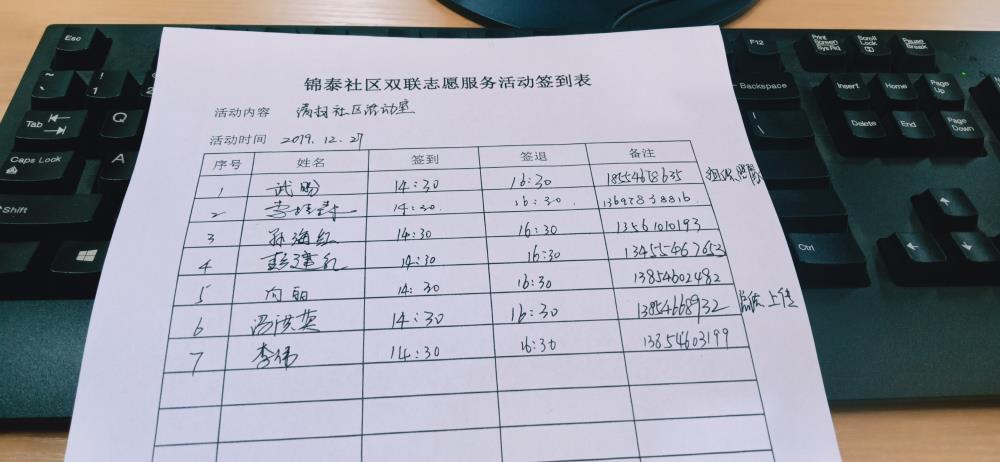 Esc
F12
Print Screen SysRq
Scroll Lock
Pause Break
~
!
1
Backspace
Insert
Home
Page Up
Tab
Q
|
\
Delete
End
Page Down
Caps Lock
A
Shift
Ctrl
锦泰社区双联志愿服务活动签到表
活动内容 清扫社区活动室
活动时间 2019.12.27
序号 姓名 签到 签退 备注
1 武 14:30 16:30 18554678635
2 李 14:30. 16:30.
3 孙海红 14:30 16:30 13561010193
4 彭建红 14:30 16:30 13455467653
5 向 14:30 16:30 13854602482
6 冯洪英 14:30 16:30 13854668932 上传
7 李伟 14:30 16:30 13854603199